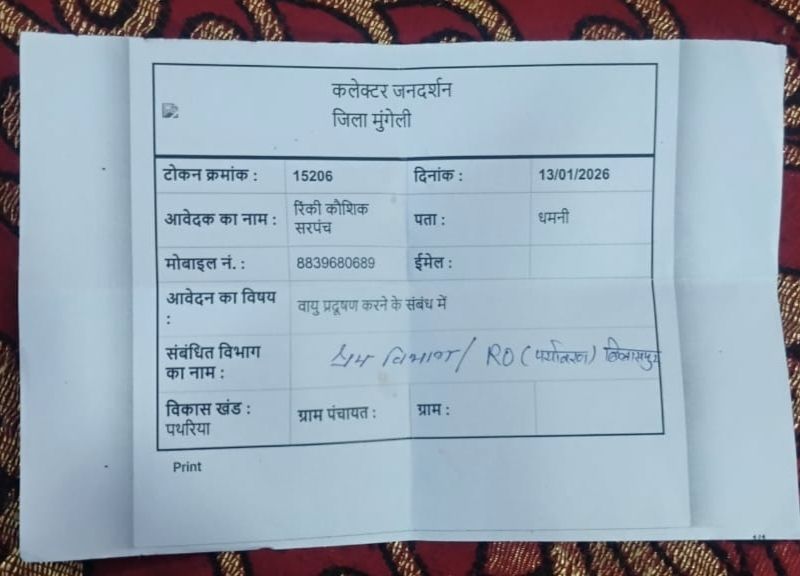 कलेक्टर जनदर्शन
जिला मुंगेली
टोकन क्रमांक : 15206 दिनांक : 13/01/2026
आवेदक का नाम : रिंकी कौशिक सरपंच पता : धमनी
मोबाइल नं. : 8839680689 ईमेल :
आवेदन का विषय : वायु प्रदूषण करने के संबंध में
संबंधित विभाग का नाम : श्रम विभाग / RO (पर्यावरण) बिलासपुर
विकास खंड : पथरिया ग्राम पंचायत : ग्राम :
Print
1/1